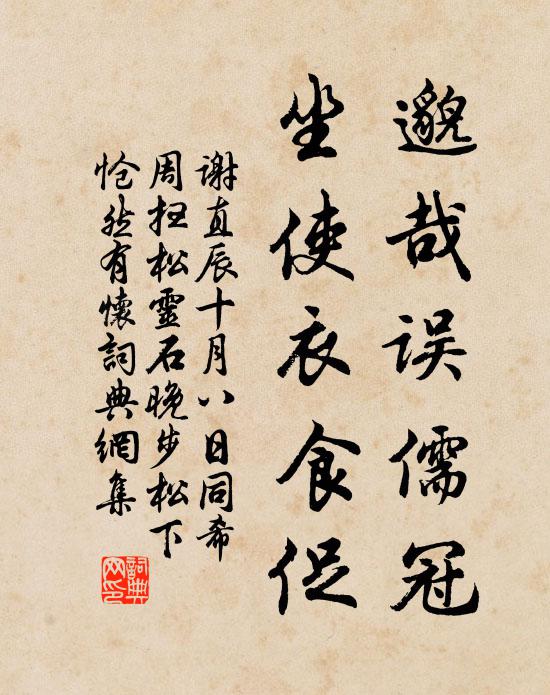 邈哉误儒冠
坐使衣食促
谢直辰十月八日同希
周抂松靈石晚步松下
怆然有懷詞典網集
詞典
网印